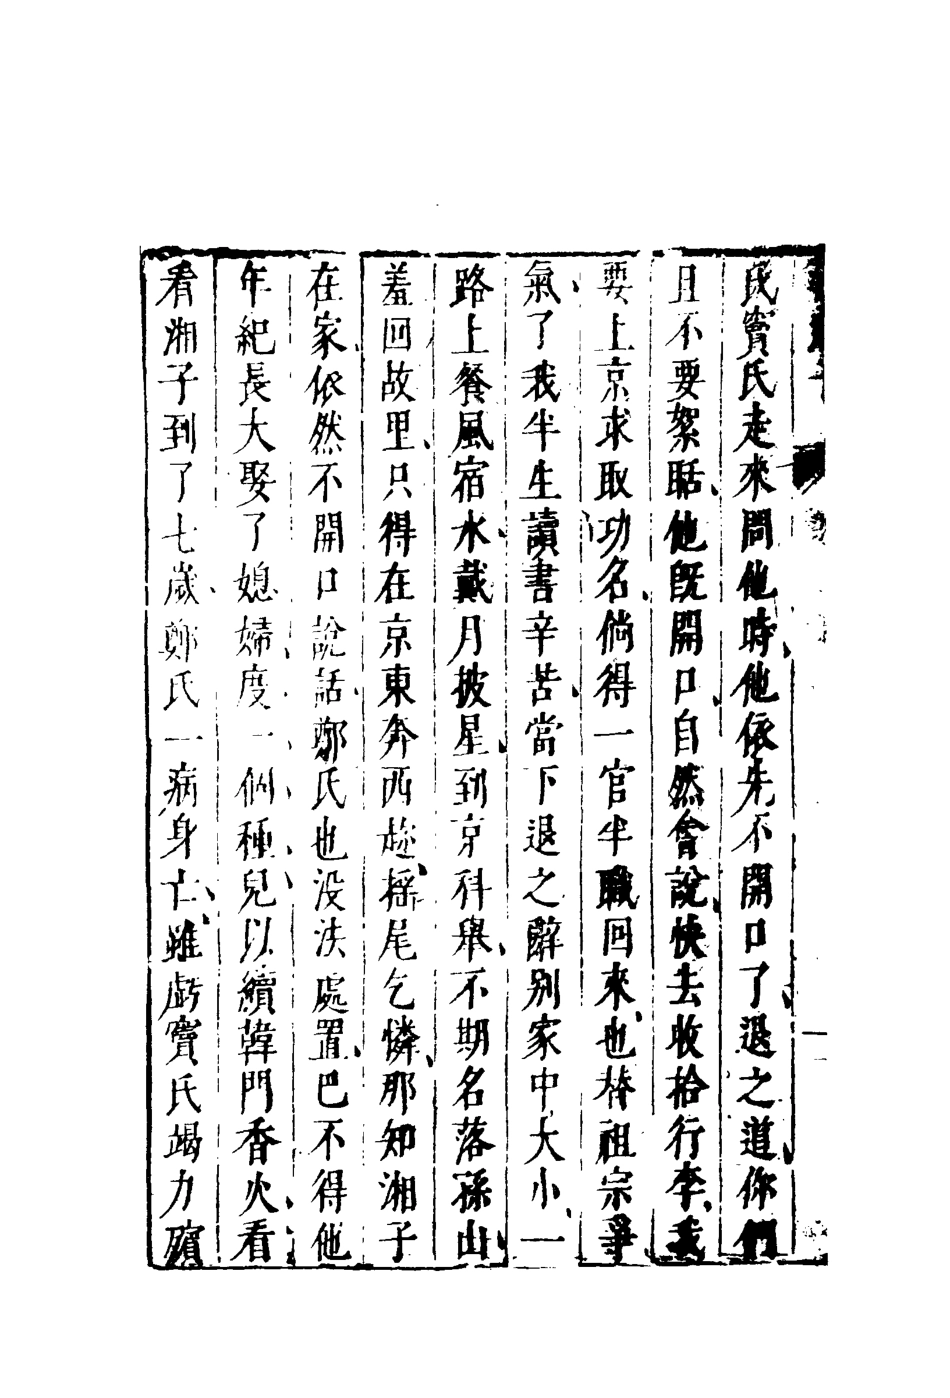 氏竇氏走來問他時他依先不開口了退之道你們
且不要絮聒他既開口自然會說快去收拾行李我
要上京求取功名倘得一官半職回來也替祖宗爭
氣了我半生讀書辛苦當下退之辭別家中大小一
路上餐風宿水戴月披星到京科舉不期名落孫山
羞回故里只得在京東奔西趂搖尾乞憐那知湘子
在家依然不開口說話鄭氏也沒法處置巴不得他
年紀長大娶了媳婦度一個種兒以續韓門香火看
看湘子到了七歲鄭氏一病身亡雖虧竇氏竭力殯